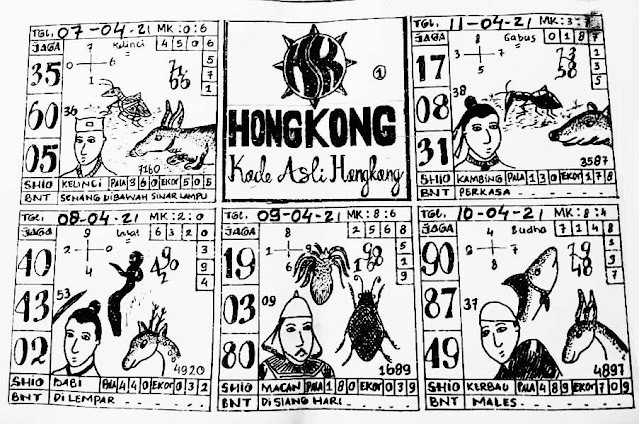 TGL. 07-04-21 MK:0:6
JAGA Kelinci 4 5 0 6
35
7
0 6
1
5
7
1
60
36
05
7160
SHIO KELINCI PALA 3 6 0 EKOR 5 0 5
BNT SENANG DIBAWAH SINAR LAMPU
HK
1
HONGKONG
Kode Asli Hongkong
TGL. 11-04-21 MK:3-7
JAGA Gabus 0 1 8 7
17
8
3 7
5
1
3
5
08
38
31
3587
SHIO KAMBING PALA 1 3 0 EKOR 1 7 8
BNT PERKASA
TGL. 08-04-21 MK:2:0
JAGA 6 3 2 0
40
9
2 0
4
3
9
4
43
53
02
4920
SHIO BABI PALA 4 4 0 EKOR 0 3 2
BNT DI LEMPAR
TGL. 09-04-21 MK:8:6
JAGA 2 5 6 8
19
8
1 6
9
5
1
9
03
09
80
1689
SHIO MACAN PALA 1 8 0 EKOR 0 3 9
BNT DI SIANG HARI
TGL. 10-04-21 MK:8:4
JAGA Budha 7 1 4 8
90
7
9 4
8
87
37
49
4897
SHIO KERBAU PALA 4 8 9 EKOR 7 0 9
BNT MALES